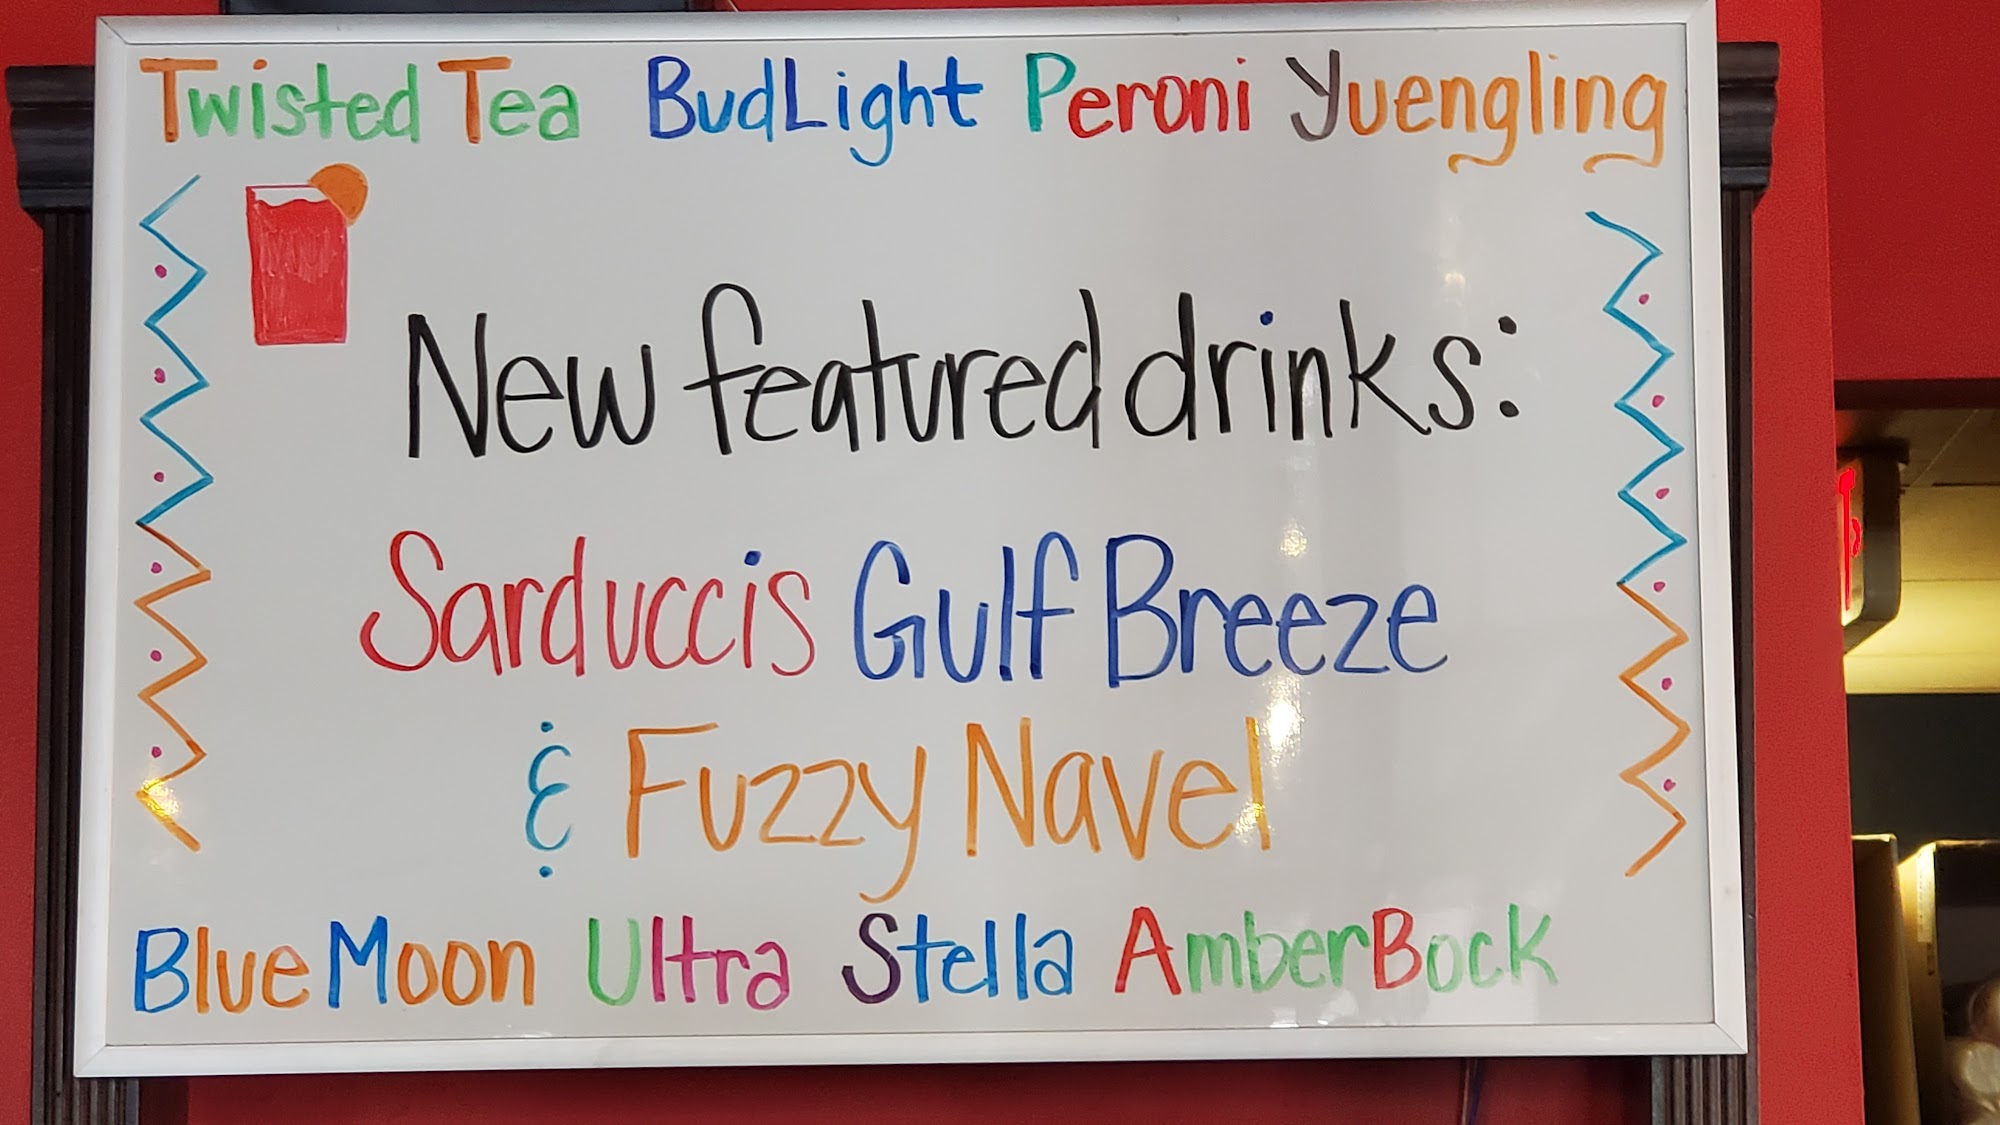 Twisted Tea BudLight Peroni Yuengling
New featured drinks:
Sarduccis Gulf Breeze
& Fuzzy Navel
Blue Moon Ultra Stella AmberBock